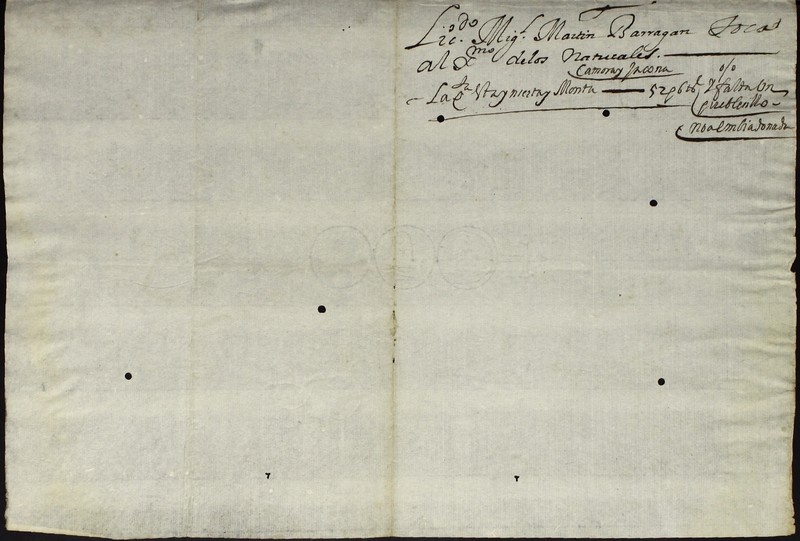 Licdo. Migl. Martin Barragan Toca
al Xmo delos Naturales.
Camora y Jacona
La qta Vta y cierta y Monta — 52 p 6 ts
Y falta Un
pueblecillo
no a embiado nada